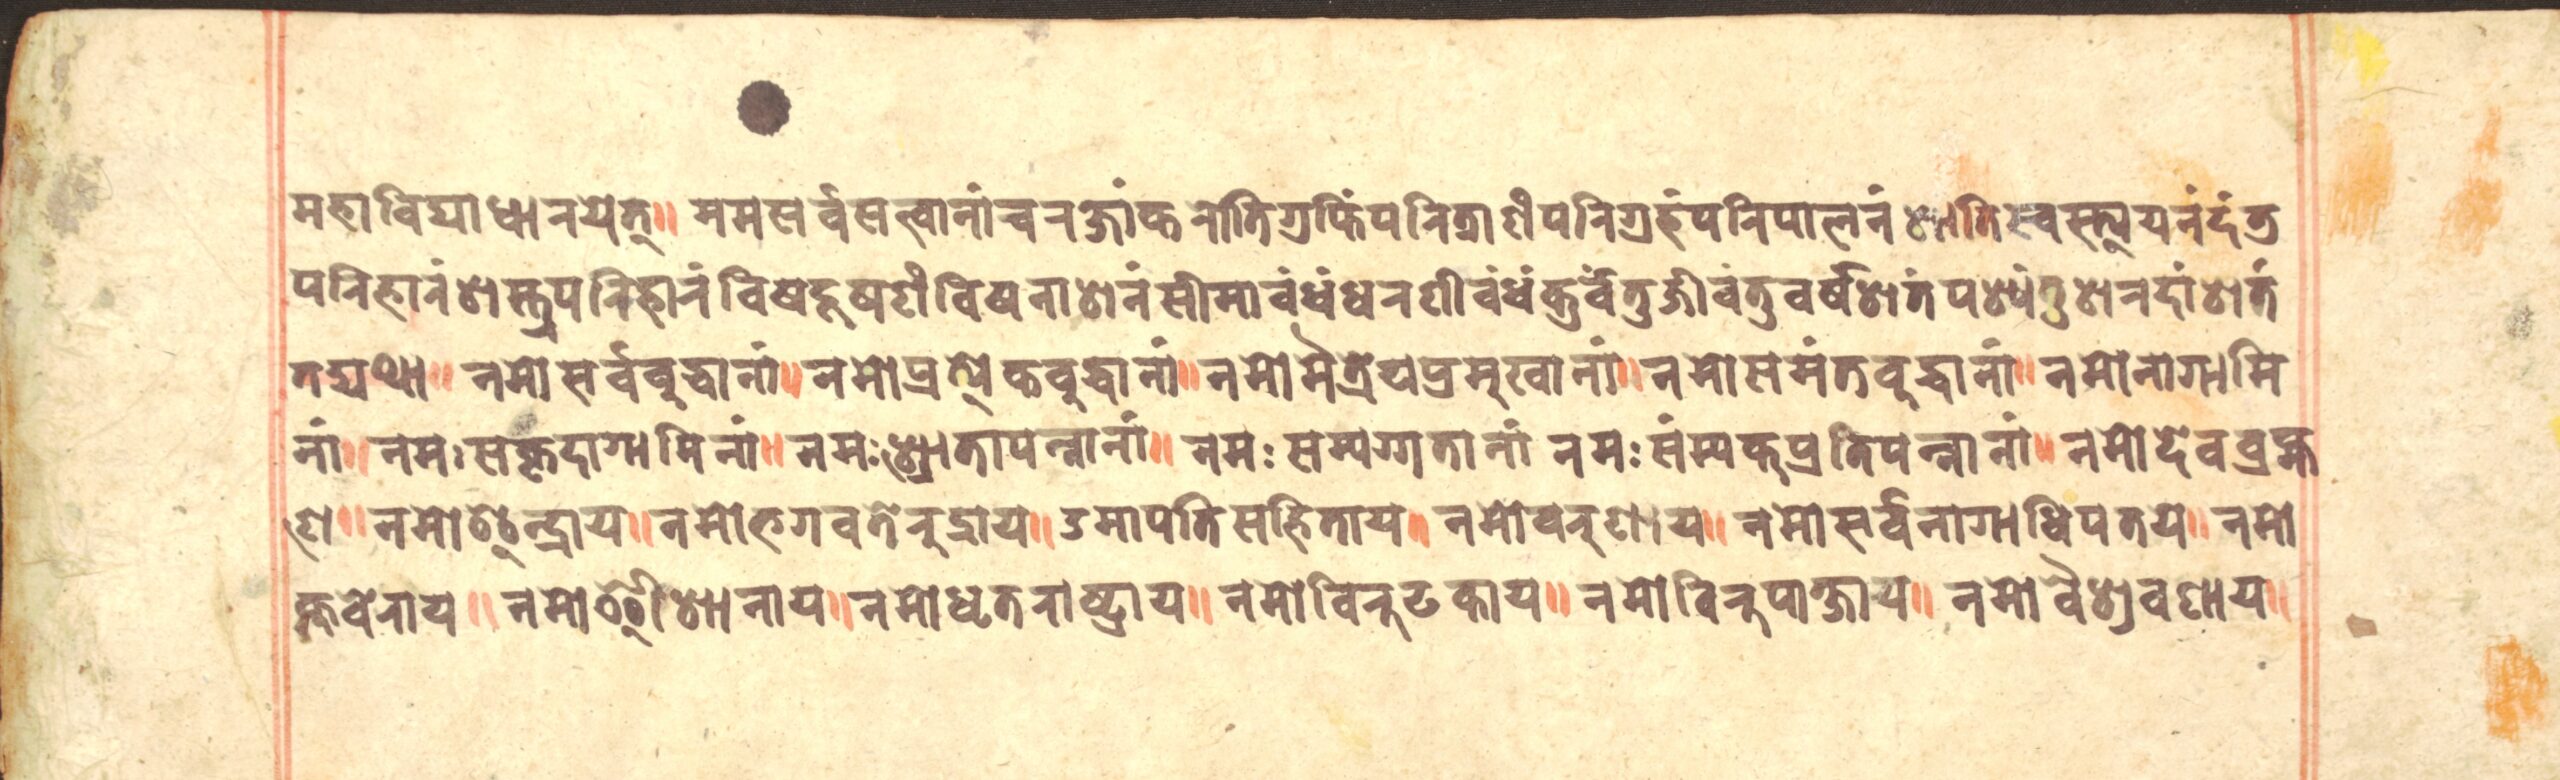 महाविद्याधारयेत्॥ ममसर्वसत्वानांचरक्षांकरोतिगुप्तिंपरित्राणंपरिग्रहंपरिपालनंशातिस्वस्त्ययनंदंड
परिहारंशस्त्रपरिहारंविषदूषणंविषनाशनंसीमावंधंधरणीवंधंकुर्वंतुजीवंतुवर्षशतंपश्यंतुशरदांशतं
तद्यथा॥ नमोसर्वबुद्धानां॥ नमोप्रत्येकबुद्धानां॥ नमोमैत्रेयप्रमुखानां॥ नमोसमंतबुद्धानां॥ नमोनागामि
नां॥ नमःसकृदागामिनां॥ नमःश्रोतापन्नानां॥ नमःसम्यग्गतानां नमःसंम्यक्प्रतिपन्नानां॥ नमोदेवब्रह्म
णे॥ नमोइन्द्राय॥ नमोभगवतेरुद्राय॥ उमापतिसहिताय॥ नमोवरुणाय॥ नमोसर्वनागाधिपतये॥ नमो
कुवेराय॥ नमोईशानाय॥ नमोधृतराष्ट्राय॥ नमोविरुढकाय॥ नमोविरुपाक्षाय॥ नमोवैश्रवणाय॥